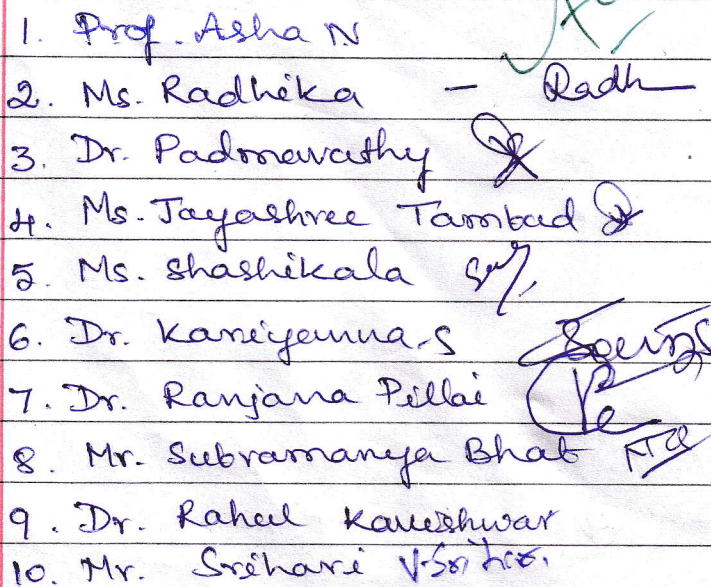 1. Prof. Asha N
2. Ms. Radhika - Radh
3. Dr. Padmavathy
4. Ms. Jayashree Tambad
5. Ms. Shashikala
6. Dr. Kaniyamma.S
7. Dr. Ranjana Pillai
8. Mr. Subramanya Bhat
9. Dr. Rahul Kaveshwar
10. Mr. Srihari